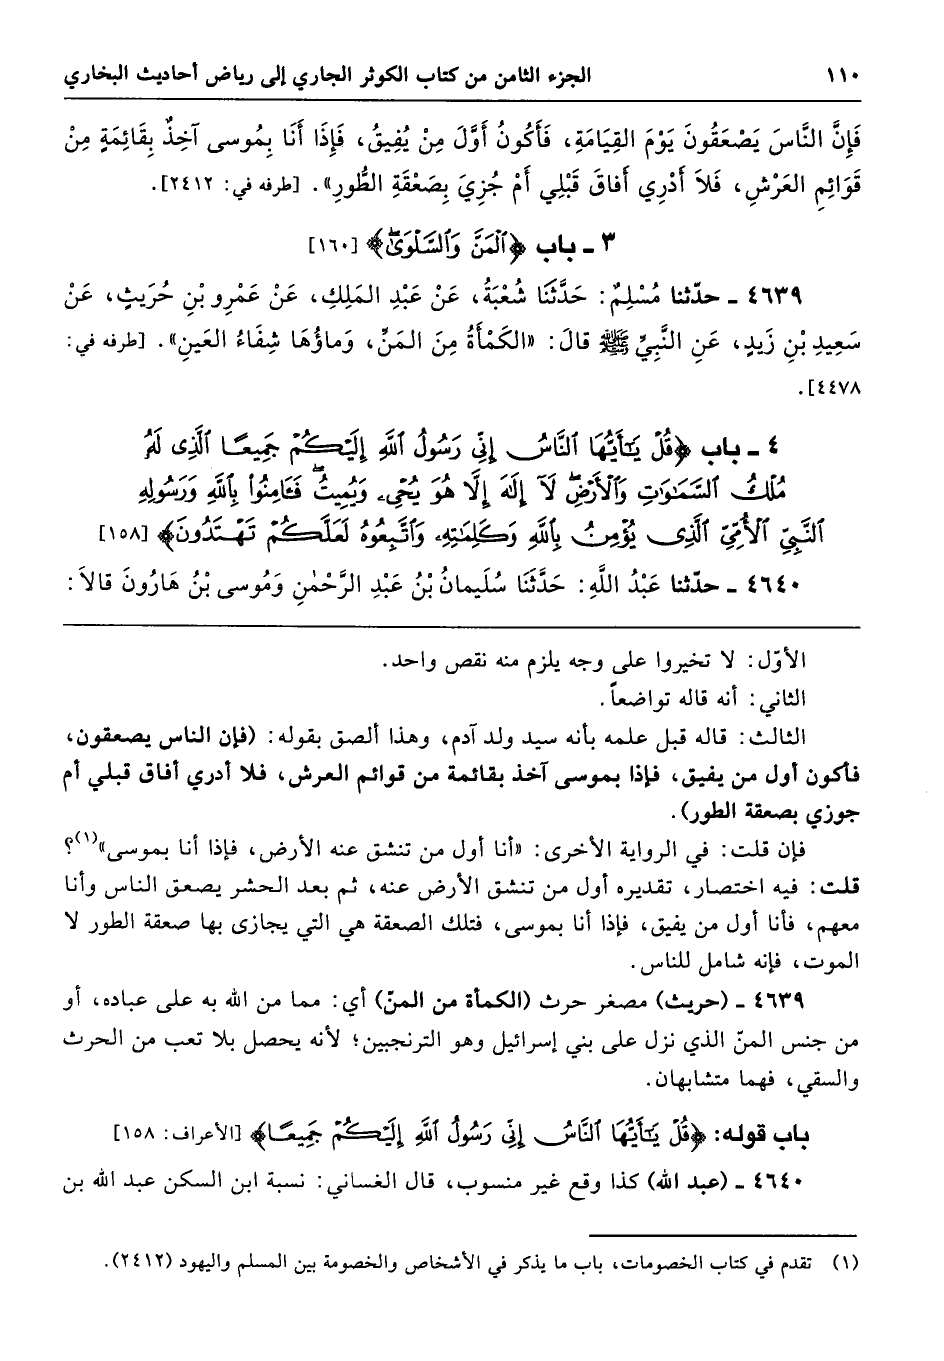 ١١٠ الجزء الثامن من كتاب الكوثر الجاري إلى رياض أحاديث البخاري
فَإِنَّ النَّاسَ يَصْعَقُونَ يَوْمَ القِيَامَةِ، فَأَكُونُ أَوَّلَ مِنْ يُفِيقُ، فَإِذَا أَنَا بِمُوسى آخِذٌ بِقَائِمَةٍ مِنْ
قَوَائِمِ العَرْشِ، فَلاَ أَدْرِي أَفاقَ قَبْلِي أَمْ جُزِيَ بِصَعْقَةِ الطُّورِ». [طرفه في: ٢٤١٢].
٣ ـ باب ﴿ٱلْمَنَّ وَٱلسَّلْوَىٰۖ﴾ [١٦٠]
٤٦٣٩ ـ حدّثنا مُسْلِمٌ: حَدَّثَنَا شُعْبَةُ، عَنْ عَبْدِ المَلِكِ، عَنْ عَمْرِو بْنِ حُرَيثٍ، عَنْ
سَعِيدِ بْنِ زَيدٍ، عَنِ النَّبِيِّ ﷺ قالَ: «الكَمْأَةُ مِنَ المَنِّ، وَماؤُهَا شِفَاءُ العَينِ». [طرفه في:
٤٤٧٨].
٤ ـ باب ﴿قُلْ يَٰٓأَيُّهَا ٱلنَّاسُ إِنِّى رَسُولُ ٱللَّهِ إِلَيْكُمْ جَمِيعًا ٱلَّذِى لَهُۥ
مُلْكُ ٱلسَّمَٰوَٰتِ وَٱلْأَرْضِۖ لَآ إِلَٰهَ إِلَّا هُوَ يُحْىِۦ وَيُمِيتُۖ فَـَٔامِنُوا۟ بِٱللَّهِ وَرَسُولِهِ
ٱلنَّبِىِّ ٱلْأُمِّىِّ ٱلَّذِى يُؤْمِنُ بِٱللَّهِ وَكَلِمَٰتِهِۦ وَٱتَّبِعُوهُ لَعَلَّكُمْ تَهْتَدُونَ﴾ [١٥٨]
٤٦٤٠ ـ حدّثنا عَبْدُ اللَّهِ: حَدَّثَنَا سُلَيمانُ بْنُ عَبْدِ الرَّحْمٰنِ وَمُوسى بْنُ هَارُونَ قالاَ:
الأوّل: لا تخيروا على وجه يلزم منه نقص واحد.
الثاني: أنه قاله تواضعاً.
الثالث: قاله قبل علمه بأنه سيد ولد آدم، وهذا ألصق بقوله: (فإن الناس يصعقون،
فأكون أول من يفيق، فإذا بموسى آخذ بقائمة من قوائم العرش، فلا أدري أفاق قبلي أم
جوزي بصعقة الطور).
فإن قلت: في الرواية الأخرى: «أنا أول من تنشق عنه الأرض، فإذا أنا بموسى»(١)؟
قلت: فيه اختصار، تقديره أول من تنشق الأرض عنه، ثم بعد الحشر يصعق الناس وأنا
معهم، فأنا أول من يفيق، فإذا أنا بموسى، فتلك الصعقة هي التي يجازى بها صعقة الطور لا
الموت، فإنه شامل للناس.
٤٦٣٩ ـ (حريث) مصغر حرث (الكمأة من المنّ) أي: مما من الله به على عباده، أو
من جنس المنّ الذي نزل على بني إسرائيل وهو الترنجبين؛ لأنه يحصل بلا تعب من الحرث
والسقي، فهما متشابهان.
باب قوله: ﴿قُلْ يَٰٓأَيُّهَا ٱلنَّاسُ إِنِّى رَسُولُ ٱللَّهِ إِلَيْكُمْ جَمِيعًا﴾ [الأعراف: ١٥٨]
٤٦٤٠ ـ (عبد الله) كذا وقع غير منسوب، قال الغساني: نسبة ابن السكن عبد الله بن
(١) تقدم في كتاب الخصومات، باب ما يذكر في الأشخاص والخصومة بين المسلم واليهود (٢٤١٢).